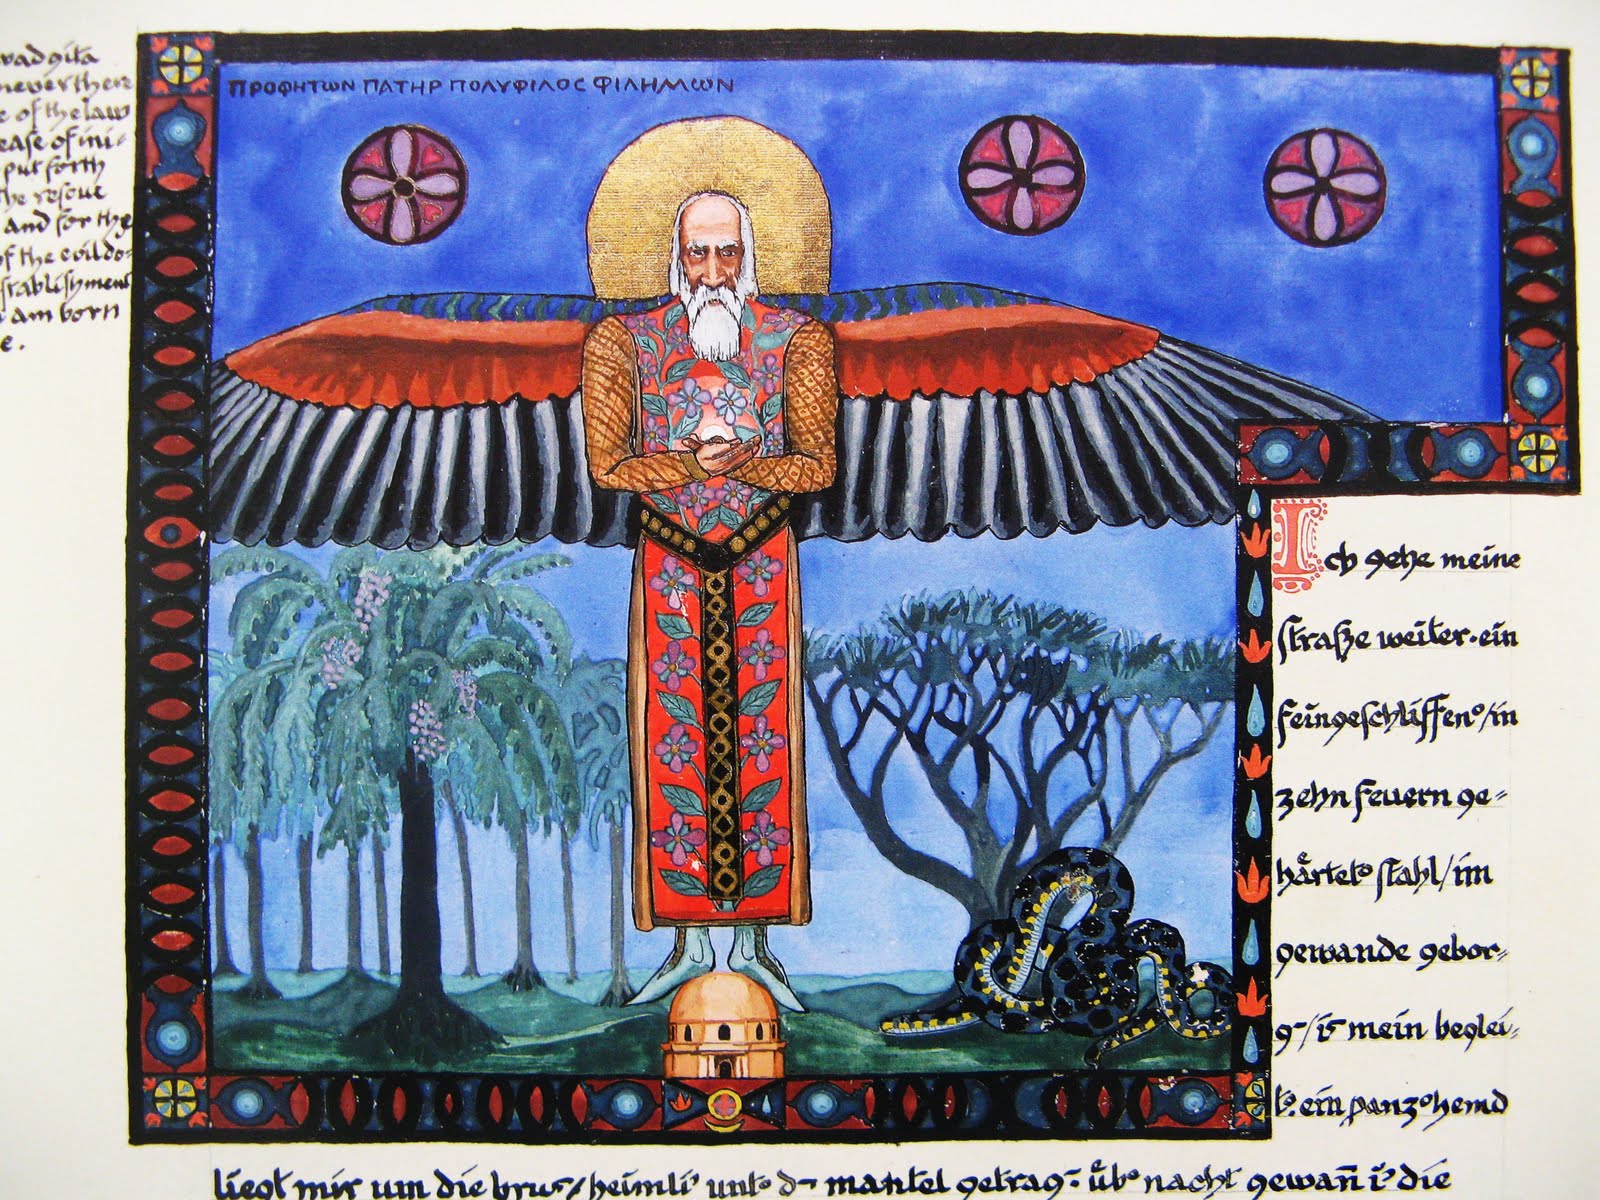 vadgita
never there
e of the law
ease of ini-
put forth
the rescue
and for the
of the evildo-
stablishment
am born
e.
ΠΡΟΦΗΤΩΝ ΠΑΤΗΡ ΠΟΛΥΦΙΛΟΣ ΦΙΛΗΜΩΝ
Ich gehe meine
straße weiter. ein
feingeschliffen°/in
zehn feuern ge=
härtet° stahl/im
gewande gebor=
g~/is mein beglei=
t°. ein panz°hemd
liegt mir um die brus/heimli unt° d~ mantel getrag~. üb° nacht gewañ i die